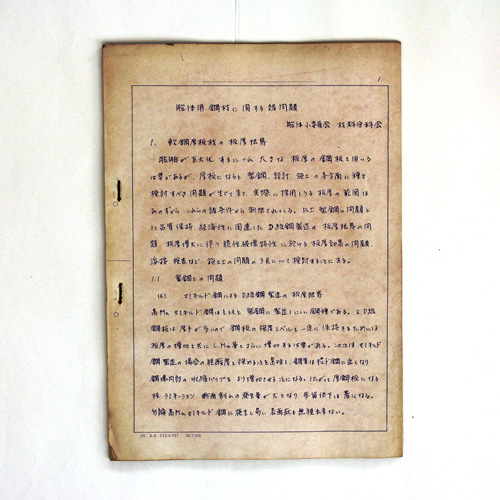 1
船体用鋼材に関する諸問題
船体小委員会 材料分科会
1. 軟鋼厚板材の板厚限界
船舶が巨大化するにつれ 大きな板厚の鋼板を用いる
必要があるが、厚板になると製鋼、設計、施工の各方面に種々
検討すべき問題が生じて来て、実際に採用しうる板厚の範囲は
みのずから これらの諸条件から制限されている。以上製鋼の問題と
して品質保持、経済性に関連した D級鋼製造の 板厚限界の問
題、板厚増大に伴う 脆性破壊特性に於ける板厚効果の問題、
溶接、検査など 施工上の問題の3点について検討することにする。
1.1 製鋼上の問題
(a) セミキルド鋼によるD級鋼製造の板厚限界
高Mnセミキルド鋼はもともと 製鋼にしにくい鋼種である。
鋼板は厚手が多いので 鋼板の強度レベルを一定に保持するためには
板厚の増加と共に C, Mn量をさらに増加する必要がある。この次は セミキルド
鋼製造の場合の脱酸度を強めることを意味し、鋼質は
鋼塊内部の収縮パイプをより増加させることになる。したがって厚鋼板になる
程ラミネーション、断面割れの発生量が大となり 歩留低下は著しくなる。
勿論高Mnセミキルド鋼に発生し易い表面疵も無視出来ない。